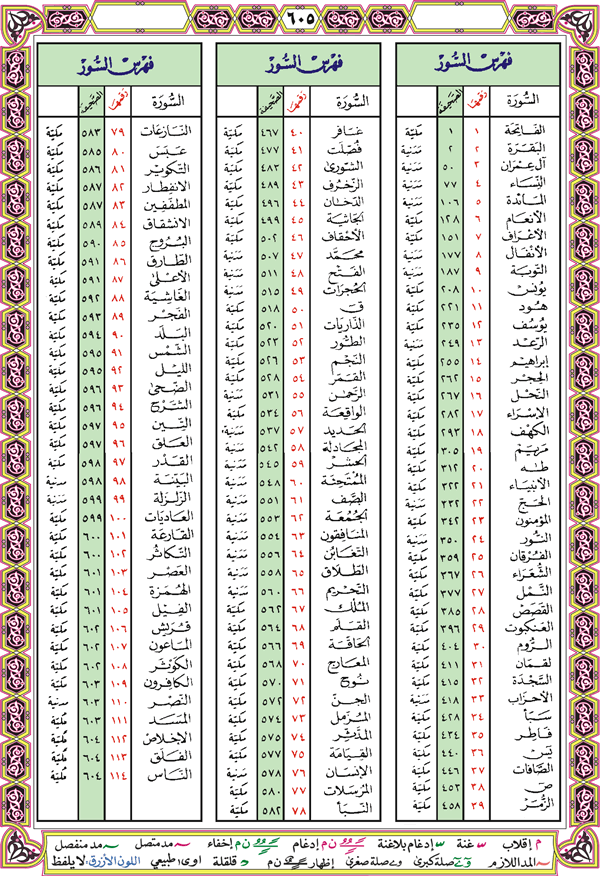 ٦٠٥
فهرس السور
السورة رقمها الصحيفة
الفاتحة ١ ١ مكية
البقرة ٢ ٢ مدنية
آل عمران ٣ ٥٠ مدنية
النساء ٤ ٧٧ مدنية
المائدة ٥ ١٠٦ مدنية
الأنعام ٦ ١٢٨ مكية
الأعراف ٧ ١٥١ مكية
الأنفال ٨ ١٧٧ مدنية
التوبة ٩ ١٨٧ مدنية
يونس ١٠ ٢٠٨ مكية
هود ١١ ٢٢١ مكية
يوسف ١٢ ٢٣٥ مكية
الرعد ١٣ ٢٤٩ مدنية
إبراهيم ١٤ ٢٥٥ مكية
الحجر ١٥ ٢٦٢ مكية
النحل ١٦ ٢٦٧ مكية
الإسراء ١٧ ٢٨٢ مكية
الكهف ١٨ ٢٩٣ مكية
مريم ١٩ ٣٠٥ مكية
طه ٢٠ ٣١٢ مكية
الأنبياء ٢١ ٣٢٢ مكية
الحج ٢٢ ٣٣٢ مدنية
المؤمنون ٢٣ ٣٤٢ مكية
النور ٢٤ ٣٥٠ مدنية
الفرقان ٢٥ ٣٥٩ مكية
الشعراء ٢٦ ٣٦٧ مكية
النمل ٢٧ ٣٧٧ مكية
القصص ٢٨ ٣٨٥ مكية
العنكبوت ٢٩ ٣٩٦ مكية
الروم ٣٠ ٤٠٤ مكية
لقمان ٣١ ٤١١ مكية
السجدة ٣٢ ٤١٥ مكية
الأحزاب ٣٣ ٤١٨ مدنية
سبأ ٣٤ ٤٢٨ مكية
فاطر ٣٥ ٤٣٤ مكية
يس ٣٦ ٤٤٠ مكية
الصافات ٣٧ ٤٤٦ مكية
ص ٣٨ ٤٥٣ مكية
الزمر ٣٩ ٤٥٨ مكية
فهرس السور
السورة رقمها الصحيفة
غافر ٤٠ ٤٦٧ مكية
فصلت ٤١ ٤٧٧ مكية
الشورى ٤٢ ٤٨٣ مكية
الزخرف ٤٣ ٤٨٩ مكية
الدخان ٤٤ ٤٩٦ مكية
الجاثية ٤٥ ٤٩٩ مكية
الأحقاف ٤٦ ٥٠٢ مكية
محمد ٤٧ ٥٠٧ مدنية
الفتح ٤٨ ٥١١ مدنية
الحجرات ٤٩ ٥١٥ مدنية
ق ٥٠ ٥١٨ مكية
الذاريات ٥١ ٥٢٠ مكية
الطور ٥٢ ٥٢٣ مكية
النجم ٥٣ ٥٢٦ مكية
القمر ٥٤ ٥٢٨ مكية
الرحمن ٥٥ ٥٣١ مدنية
الواقعة ٥٦ ٥٣٤ مكية
الحديد ٥٧ ٥٣٧ مدنية
المجادلة ٥٨ ٥٤٢ مدنية
الحشر ٥٩ ٥٤٥ مدنية
الممتحنة ٦٠ ٥٤٨ مدنية
الصف ٦١ ٥٥١ مدنية
الجمعة ٦٢ ٥٥٣ مدنية
المنافقون ٦٣ ٥٥٤ مدنية
التغابن ٦٤ ٥٥٦ مدنية
الطلاق ٦٥ ٥٥٨ مدنية
التحريم ٦٦ ٥٦٠ مدنية
الملك ٦٧ ٥٦٢ مكية
القلم ٦٨ ٥٦٤ مكية
الحاقة ٦٩ ٥٦٦ مكية
المعارج ٧٠ ٥٦٨ مكية
نوح ٧١ ٥٧٠ مكية
الجن ٧٢ ٥٧٢ مكية
المزمل ٧٣ ٥٧٤ مكية
المدثر ٧٤ ٥٧٥ مكية
القيامة ٧٥ ٥٧٧ مكية
الإنسان ٧٦ ٥٧٨ مدنية
المرسلات ٧٧ ٥٨٠ مكية
النبأ ٧٨ ٥٨٢ مكية
فهرس السور
السورة رقمها الصحيفة
النازعات ٧٩ ٥٨٣ مكية
عبس ٨٠ ٥٨٥ مكية
التكوير ٨١ ٥٨٦ مكية
الانفطار ٨٢ ٥٨٧ مكية
المطففين ٨٣ ٥٨٧ مكية
الانشقاق ٨٤ ٥٨٩ مكية
البروج ٨٥ ٥٩٠ مكية
الطارق ٨٦ ٥٩١ مكية
الأعلى ٨٧ ٥٩١ مكية
الغاشية ٨٨ ٥٩٢ مكية
الفجر ٨٩ ٥٩٣ مكية
البلد ٩٠ ٥٩٤ مكية
الشمس ٩١ ٥٩٥ مكية
الليل ٩٢ ٥٩٥ مكية
الضحى ٩٣ ٥٩٦ مكية
الشرح ٩٤ ٥٩٦ مكية
التين ٩٥ ٥٩٧ مكية
العلق ٩٦ ٥٩٧ مكية
القدر ٩٧ ٥٩٨ مكية
البينة ٩٨ ٥٩٨ مدنية
الزلزلة ٩٩ ٥٩٩ مدنية
العاديات ١٠٠ ٥٩٩ مكية
القارعة ١٠١ ٦٠٠ مكية
التكاثر ١٠٢ ٦٠٠ مكية
العصر ١٠٣ ٦٠١ مكية
الهمزة ١٠٤ ٦٠١ مكية
الفيل ١٠٥ ٦٠١ مكية
قريش ١٠٦ ٦٠٢ مكية
الماعون ١٠٧ ٦٠٢ مكية
الكوثر ١٠٨ ٦٠٢ مكية
الكافرون ١٠٩ ٦٠٣ مكية
النصر ١١٠ ٦٠٣ مدنية
المسد ١١١ ٦٠٣ مكية
الإخلاص ١١٢ ٦٠٤ مكية
الفلق ١١٣ ٦٠٤ مكية
الناس ١١٤ ٦٠٤ مكية
م إقلاب س غنة س إدغام بلاغنة ن م إدغام ن م إخفاء مد متصل مد منفصل
المد اللازم صلة كبرى صلة صغرى إظهار ن م د قلقلة اوى طبيعي اللون الأزرق: لا يلفظ